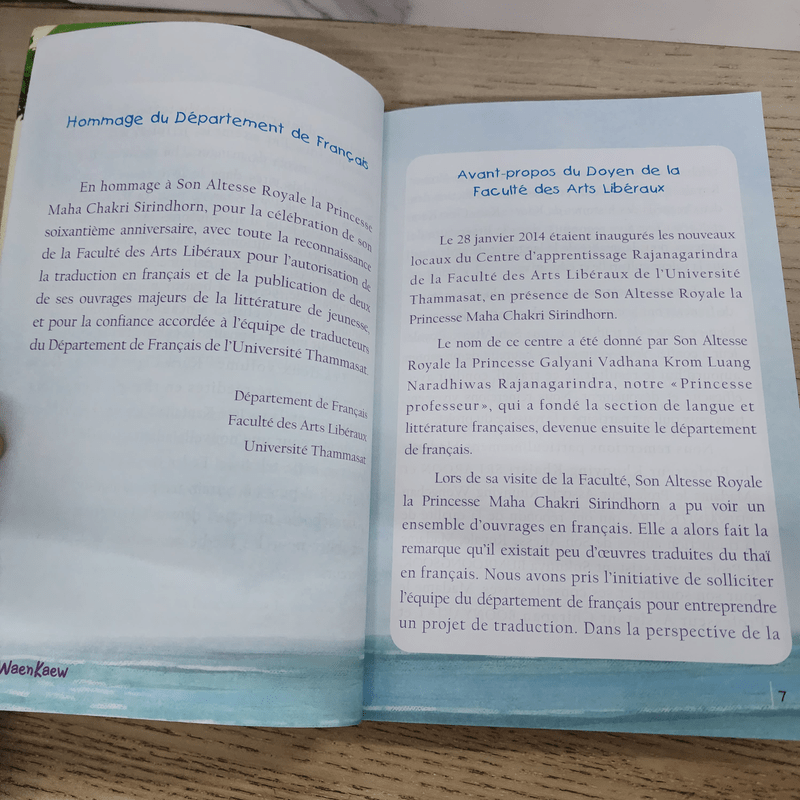 Hommage du Département de Français
En hommage à Son Altesse Royale la Princesse
Maha Chakri Sirindhorn, pour la célébration de son
soixantième anniversaire, avec toute la reconnaissance
de la Faculté des Arts Libéraux pour l'autorisation de
la traduction en français et de la publication de deux
de ses ouvrages majeurs de la littérature de jeunesse,
et pour la confiance accordée à l'équipe de traducteurs
du Département de Français de l'Université Thammasat.
Département de Français
Faculté des Arts Libéraux
Université Thammasat
NaenKaew
Avant-propos du Doyen de la
Faculté des Arts Libéraux
Le 28 janvier 2014 étaient inaugurés les nouveaux
locaux du Centre d'apprentissage Rajanagarindra
de la Faculté des Arts Libéraux de l'Université
Thammasat, en présence de Son Altesse Royale la
Princesse Maha Chakri Sirindhorn.
Le nom de ce centre a été donné par Son Altesse
Royale la Princesse Galyani Vadhana Krom Luang
Naradhiwas Rajanagarindra, notre « Princesse
professeur », qui a fondé la section de langue et
littérature françaises, devenue ensuite le département
de français.
Lors de sa visite de la Faculté, Son Altesse Royale
la Princesse Maha Chakri Sirindhorn a pu voir un
ensemble d'ouvrages en français. Elle a alors fait la
remarque qu'il existait peu d'œuvres traduites du thaï
en français. Nous avons pris l'initiative de solliciter
l'équipe du département de français pour entreprendre
un projet de traduction. Dans la perspective de la
7